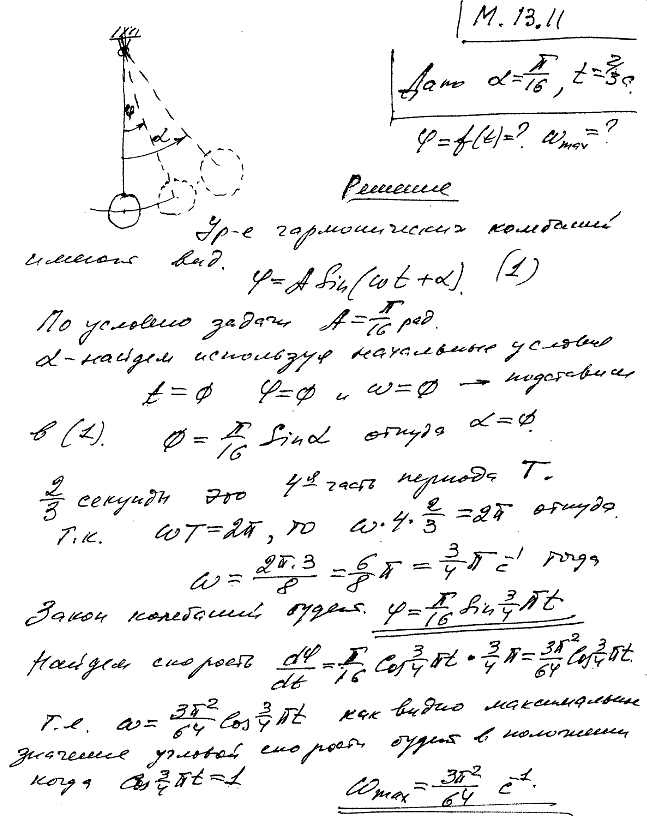 М. 13.11
Дано α=π/16, t=2/3 с.
φ=f(t)=? ω_max=?
φ
α
Решение
Ур-е гармонических колебаний
имеют вид.
φ=A Sin(ωt+α). (1)
По условию задачи A=π/16 рад.
α-найдем используя начальные условия
t=0 φ=0 и ω=0 → подставим
в (1). 0=π/16 Sinα откуда α=0.
2/3 секунды это 4ая часть периода T.
т.к. ωT=2π, то ω·4·2/3=2π откуда.
ω=2π·3/8=6/8π=3/4π с⁻¹ тогда
Закон колебаний будет. φ=π/16 Sin 3/4πt
Найдем скорость dφ/dt=π/16 Cos 3/4πt·3/4π=3π²/64 Cos 3/4πt.
т.е. ω=3π²/64 Cos 3/4πt как видно максимальн
значение угловой скорости будет в положении
когда Cos 3/4πt=1 ω_max=3π²/64 с⁻¹.